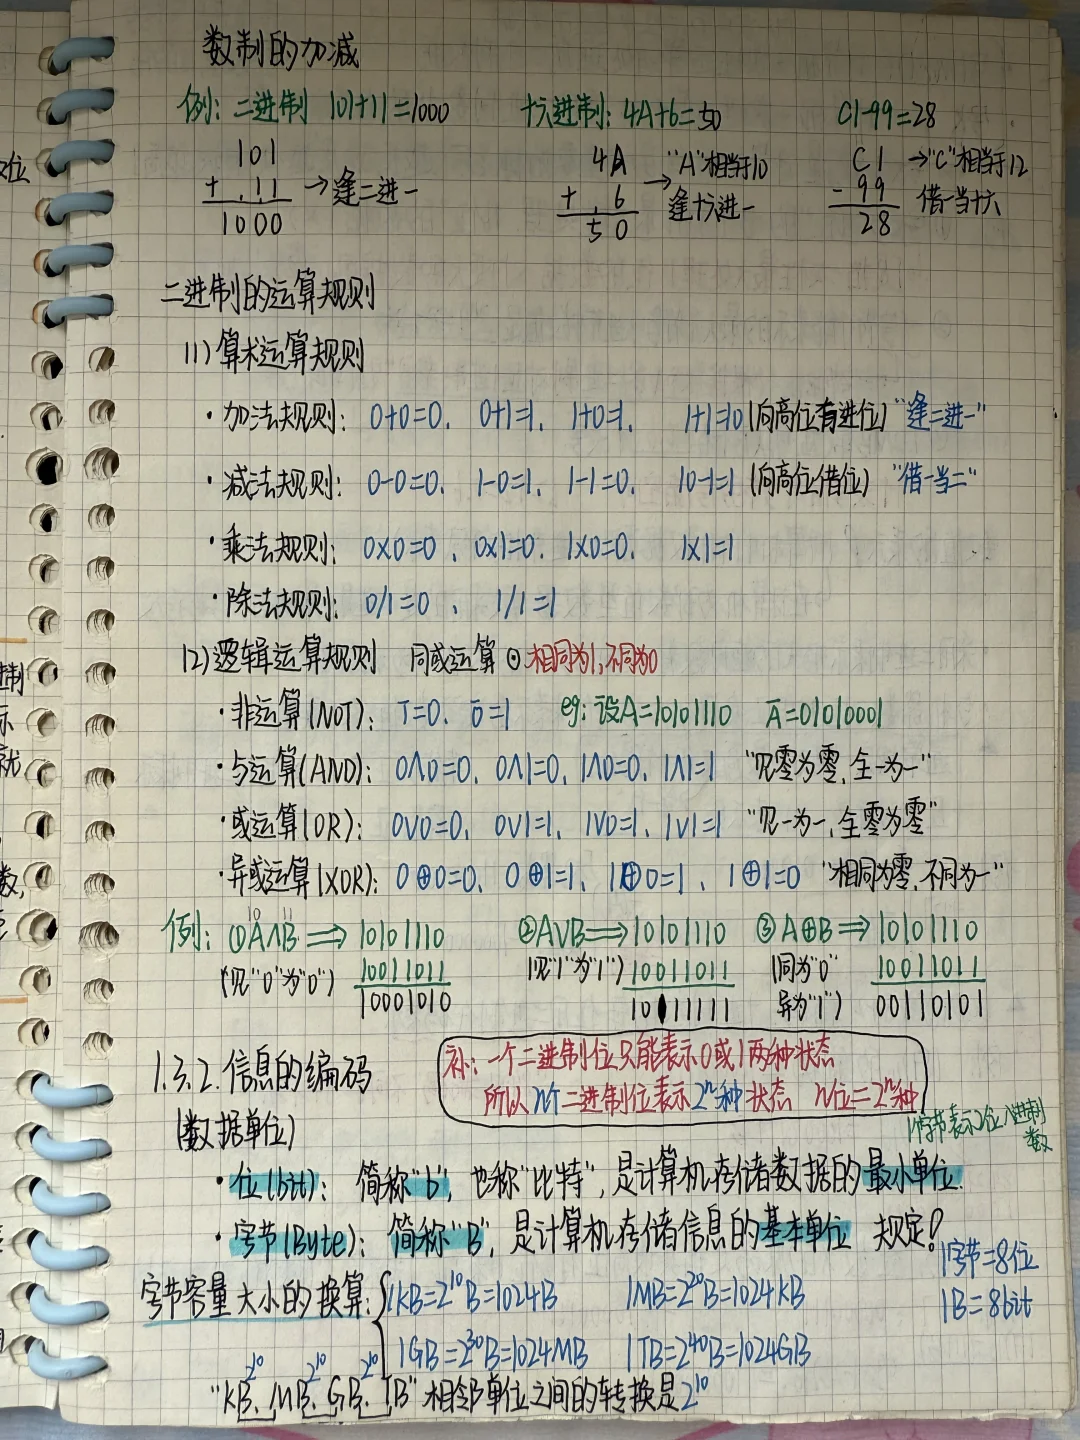 数制的加减
例: 二进制 101+11=1000 十六进制: 4A+6=50 C1-99=28
101 4A "A"相当于10 C1 →"C"相当于12
+ .11 →逢二进一 + . 6 → 逢十六进一 - 99 借一当十六
1000 50 28
二进制的运算规则
(1) 算术运算规则
· 加法规则: 0+0=0. 0+1=1. 1+0=1. 1+1=10 (向高位有进位) "逢二进一"
· 减法规则: 0-0=0. 1-0=1. 1-1=0. 10-1=1 (向高位借位) "借一当二"
· 乘法规则: 0×0=0 . 0×1=0. 1×0=0. 1×1=1
· 除法规则: 0/1=0 、 1/1=1
(2) 逻辑运算规则 同或运算 ⊙ 相同为1,不同为0
· 非运算(NOT): 1̄=0. 0̄=1 eg: 设A=10101110 Ā=01010001
· 与运算(AND): 0∧0=0. 0∧1=0. 1∧0=0. 1∧1=1 "见零为零.全一为一"
· 或运算(OR): 0∨0=0. 0∨1=1. 1∨0=1. 1∨1=1 "见一为一.全零为零"
· 异或运算(XOR): 0⊕0=0. 0⊕1=1. 1⊕0=1 、 1⊕1=0 "相同为零.不同为一"
10 11
例: ①A∧B ⇒ 10101110 ②A∨B⇒10101110 ③A⊕B⇒10101110
(见"0"为"0") 10011011 (见"1"为"1") 10011011 (同为"0" 10011011
10001010 10111111 异为"1") 00110101
补: 一个二进制位只能表示0或1两种状态
所以n个二进制位表示2ⁿ种状态 n位=2ⁿ种
1.3.2.信息的编码
(数据单位)
1字节表示2位16进制数
· 位(bit): 简称"b", 也称"比特", 是计算机存储数据的最小单位.
· 字节(Byte): 简称"B", 是计算机存储信息的基本单位 规定!
1字节=8位
1B=8bit
字节容量大小的换算: 1KB=2¹⁰B=1024B 1MB=2²⁰B=1024KB
1GB=2³⁰B=1024MB 1TB=2⁴⁰B=1024GB
2¹⁰ 2¹⁰ 2¹⁰
"KB、MB、GB、TB"相邻单位之间的转换是2¹⁰